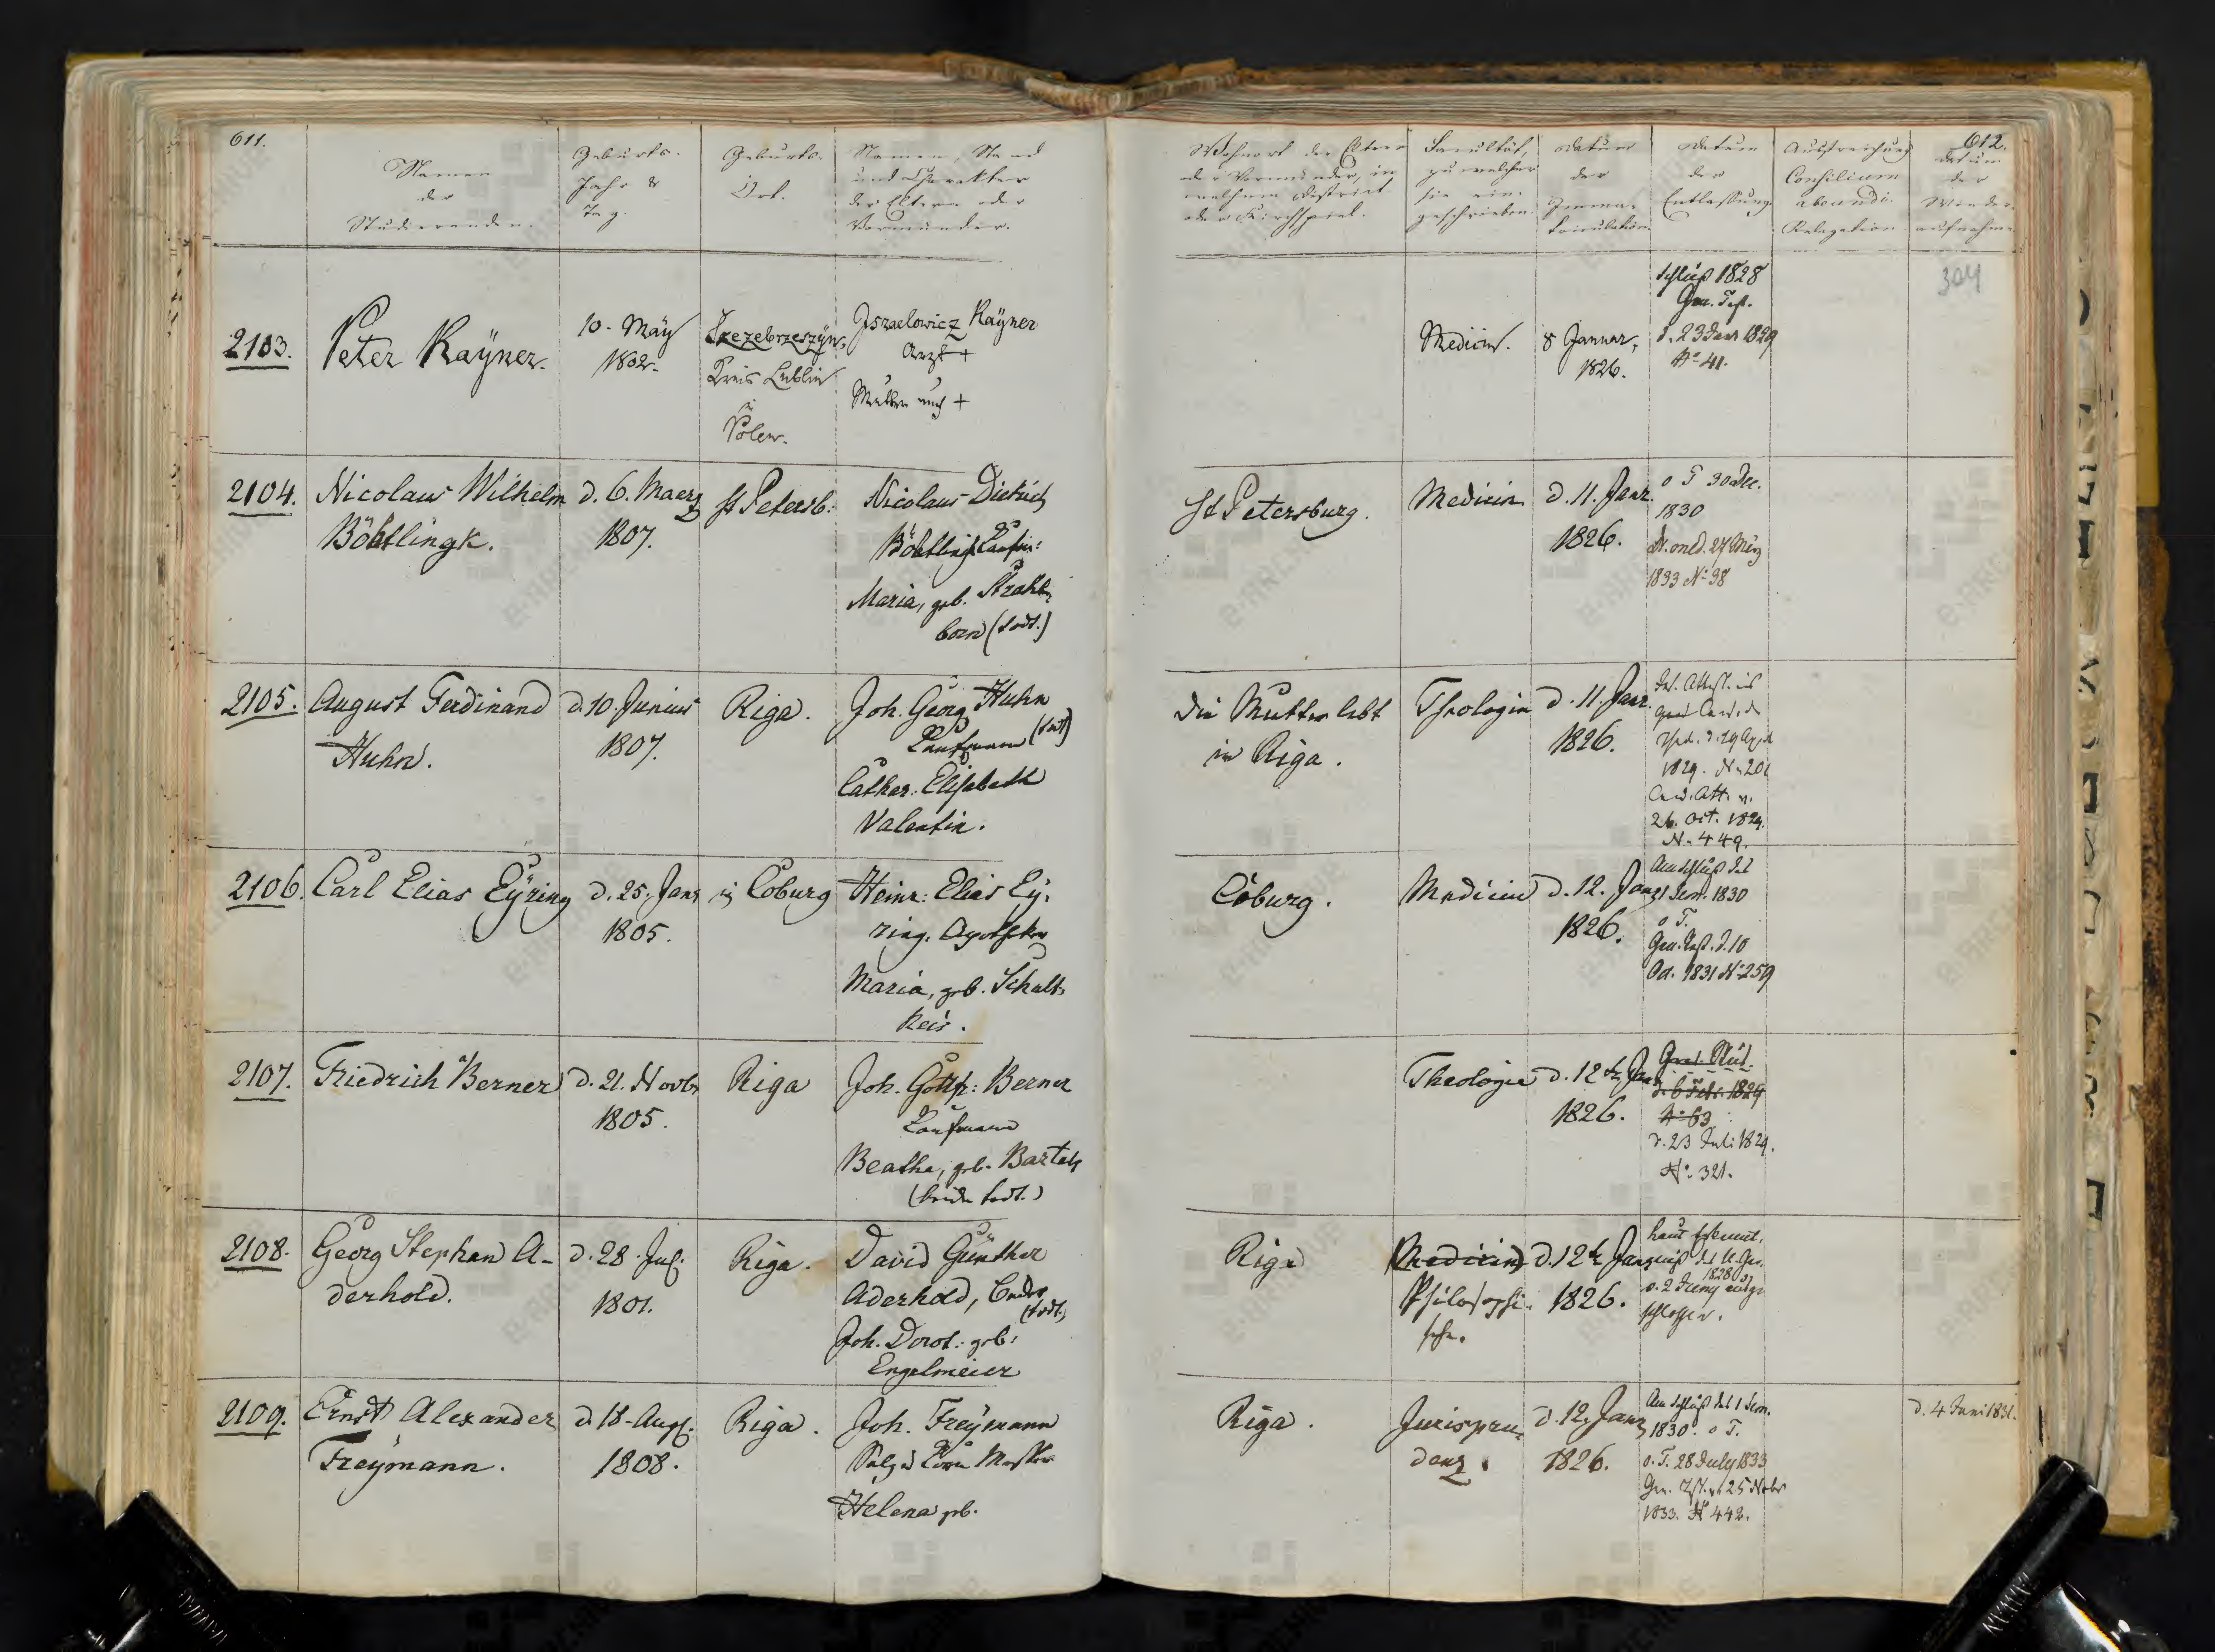 611.
Namen
der
Studierenden.
Geburts-
Jahr &
Tag.
Geburts-
Ort.
Namen, Stand
und Charakter
der Eltern oder
Vormünder.
Wohnort der Eltern
oder Vormünder, in
welchem District
oder Kirchspiel.
Facultät,
zu welcher
sie ein-
geschrieben.
Datum
der
Immma-
triculation.
Datum
der
Entlassung
Ausstreichung
Consilium
abeundi.
Relegation
612.
Datum
der
Wieder-
aufnahme
304
2103.
Peter Raÿner.
10. Maÿ
1802.
Szczebrzeszÿn,
Kreis Lublin
in
Polen.
Iszaelowicz Raÿner
Arzt +
Mutter auch +
Medicin.
8 Januar,
1826.
Schluß 1828
Gra. Test.
d. 23 Janr 1829
No 41.
2104.
Nicolaus Wilhelm
Böhtlingk.
d. 6. Maerz
1807.
St Petersb:
Nicolaus Dietrich
Böhtlingk Kaufm:
Maria, geb. Strahl-
born (todt.)
St Petersburg.
Medicin
d. 11. Janr.
1826.
o T 30 Dec.
1830
Dr. med. 27 März
1833 No 98
2105.
August Ferdinand
Huhn.
d. 10. Junius
1807.
Riga.
Joh. Georg Huhn
Kaufmann (todt)
Cathar: Elisabeth
Valentin.
Die Mutter lebt
in Riga.
Theologie
d. 11. Janr.
1826.
1829. N. 201
Cand. Att. v.
26. Oct. 1829
N. 449.
2106.
Carl Elias Eÿring
d. 25. Janr
1805.
in Coburg
Heinr: Elias Eÿ-
ring. Apotheker
Maria, geb. Schult-
heis.
Coburg.
Medicin
d. 12. Janr
1826.
Am Schluß des
1 Sem. 1830
o T.
Gra. Test. d. 10
Oct. 1831 No 259
2107.
Friedrich Berner
d. 21. Novbr
1805.
Riga
Joh. Gottfr: Berner
Kaufmann
Beatha, geb. Bartels
(beide todt.)
Theologie
d. 12 te Janr
1826.
Grad. Stud.
d. 6 Febr. 1829
No 63
d. 23 Juli 1829.
No. 321.
2108.
Georg Stephan A-
derhold.
d. 28. Jul.
1801.
Riga.
David Günther
Aderhold,
(todt.)
Joh. Dorot: geb:
Engelmeier
Riga
(Medicin)
Philosophi-
sche.
d. 12 te Janr
1826.
laut Erkennt-
niß des U. Ger.
1828
v. 2 Juny ausge-
schlossen.
2109.
Ernst Alexander
Freÿmann.
d. 18. Aug.
1808.
Riga.
Joh. Freÿmann
Salz & Korn Messer
Helena geb.
Riga.
Jurispru-
denz.
d. 12. Janr
1826.
Am Schluß des 1 Sem.
1830. o T.
o. T. 28 July 1833
Gra. Test. v. 25 Nobr
1833. No 442.
d. 4 Juni 1831.